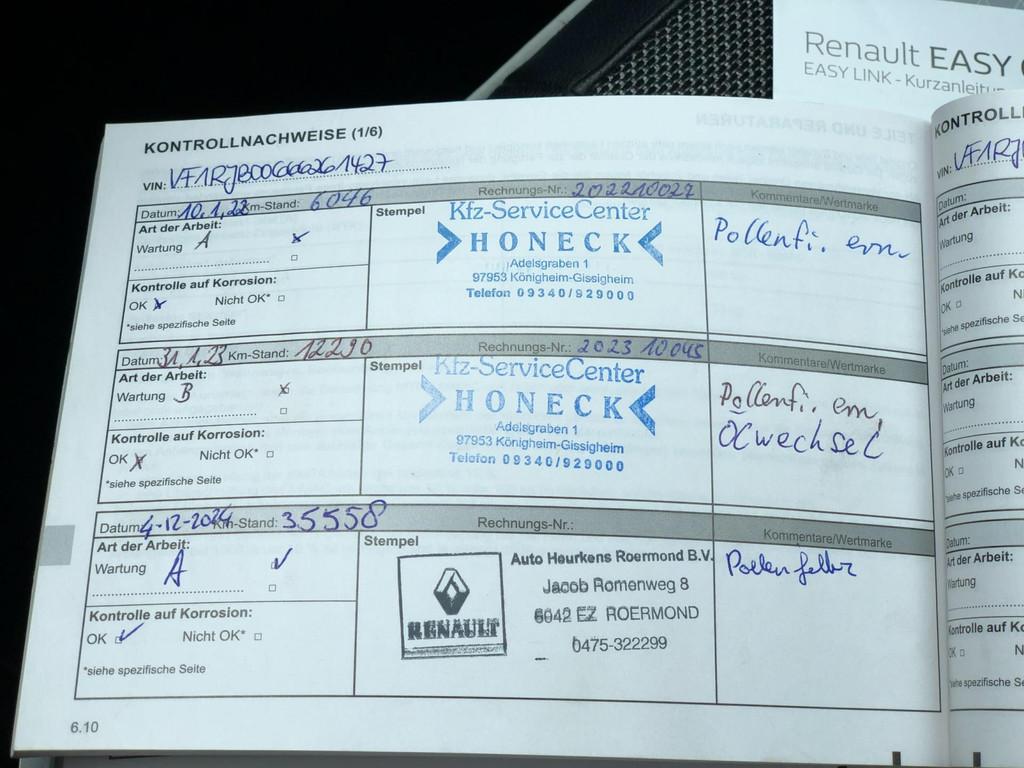 Renault EASY
EASY LINK - Kurzanleitu
KONTROLLNACHWEISE (1/6)
VIN: VF1RJB00666261427
Datum: 10.1.22 Km-Stand: 6046 Rechnungs-Nr.: 202210027 Kommentare/Wertmarke
Art der Arbeit:
Wartung A x
Kontrolle auf Korrosion:
OK x Nicht OK*
*siehe spezifische Seite
Stempel
Kfz-ServiceCenter
HONECK
Adelsgraben 1
97953 Königheim-Gissigheim
Telefon 09340/929000
Pollenfi. ern.
Datum: 31.1.23 Km-Stand: 12290 Rechnungs-Nr.: 202310045 Kommentare/Wertmarke
Art der Arbeit:
Wartung B x
Kontrolle auf Korrosion:
OK x Nicht OK*
*siehe spezifische Seite
Stempel
Kfz-ServiceCenter
HONECK
Adelsgraben 1
97953 Königheim-Gissigheim
Telefon 09340/929000
Pollenfi. ern.
Ölwechsel
Datum: 4-12-2024 Km-Stand: 35558 Rechnungs-Nr.: Kommentare/Wertmarke
Art der Arbeit:
Wartung A ✓
Kontrolle auf Korrosion:
OK ✓ Nicht OK*
*siehe spezifische Seite
Stempel
RENAULT
Auto Heurkens Roermond B.V.
Jacob Romenweg 8
6042 EZ ROERMOND
0475-322299
6.10
KONTROLL
VIN: VF1RJ
Datum:
Art der Arbeit:
Wartung
Kontrolle auf Ko
OK N
*siehe spezifische S
Datum:
Art der Arbeit:
Wartung
Kontrolle auf Ko
OK N
*siehe spezifische Se
Datum:
Art der Arbeit:
Wartung
Kontrolle auf Ko
OK N
*siehe spezifische Se